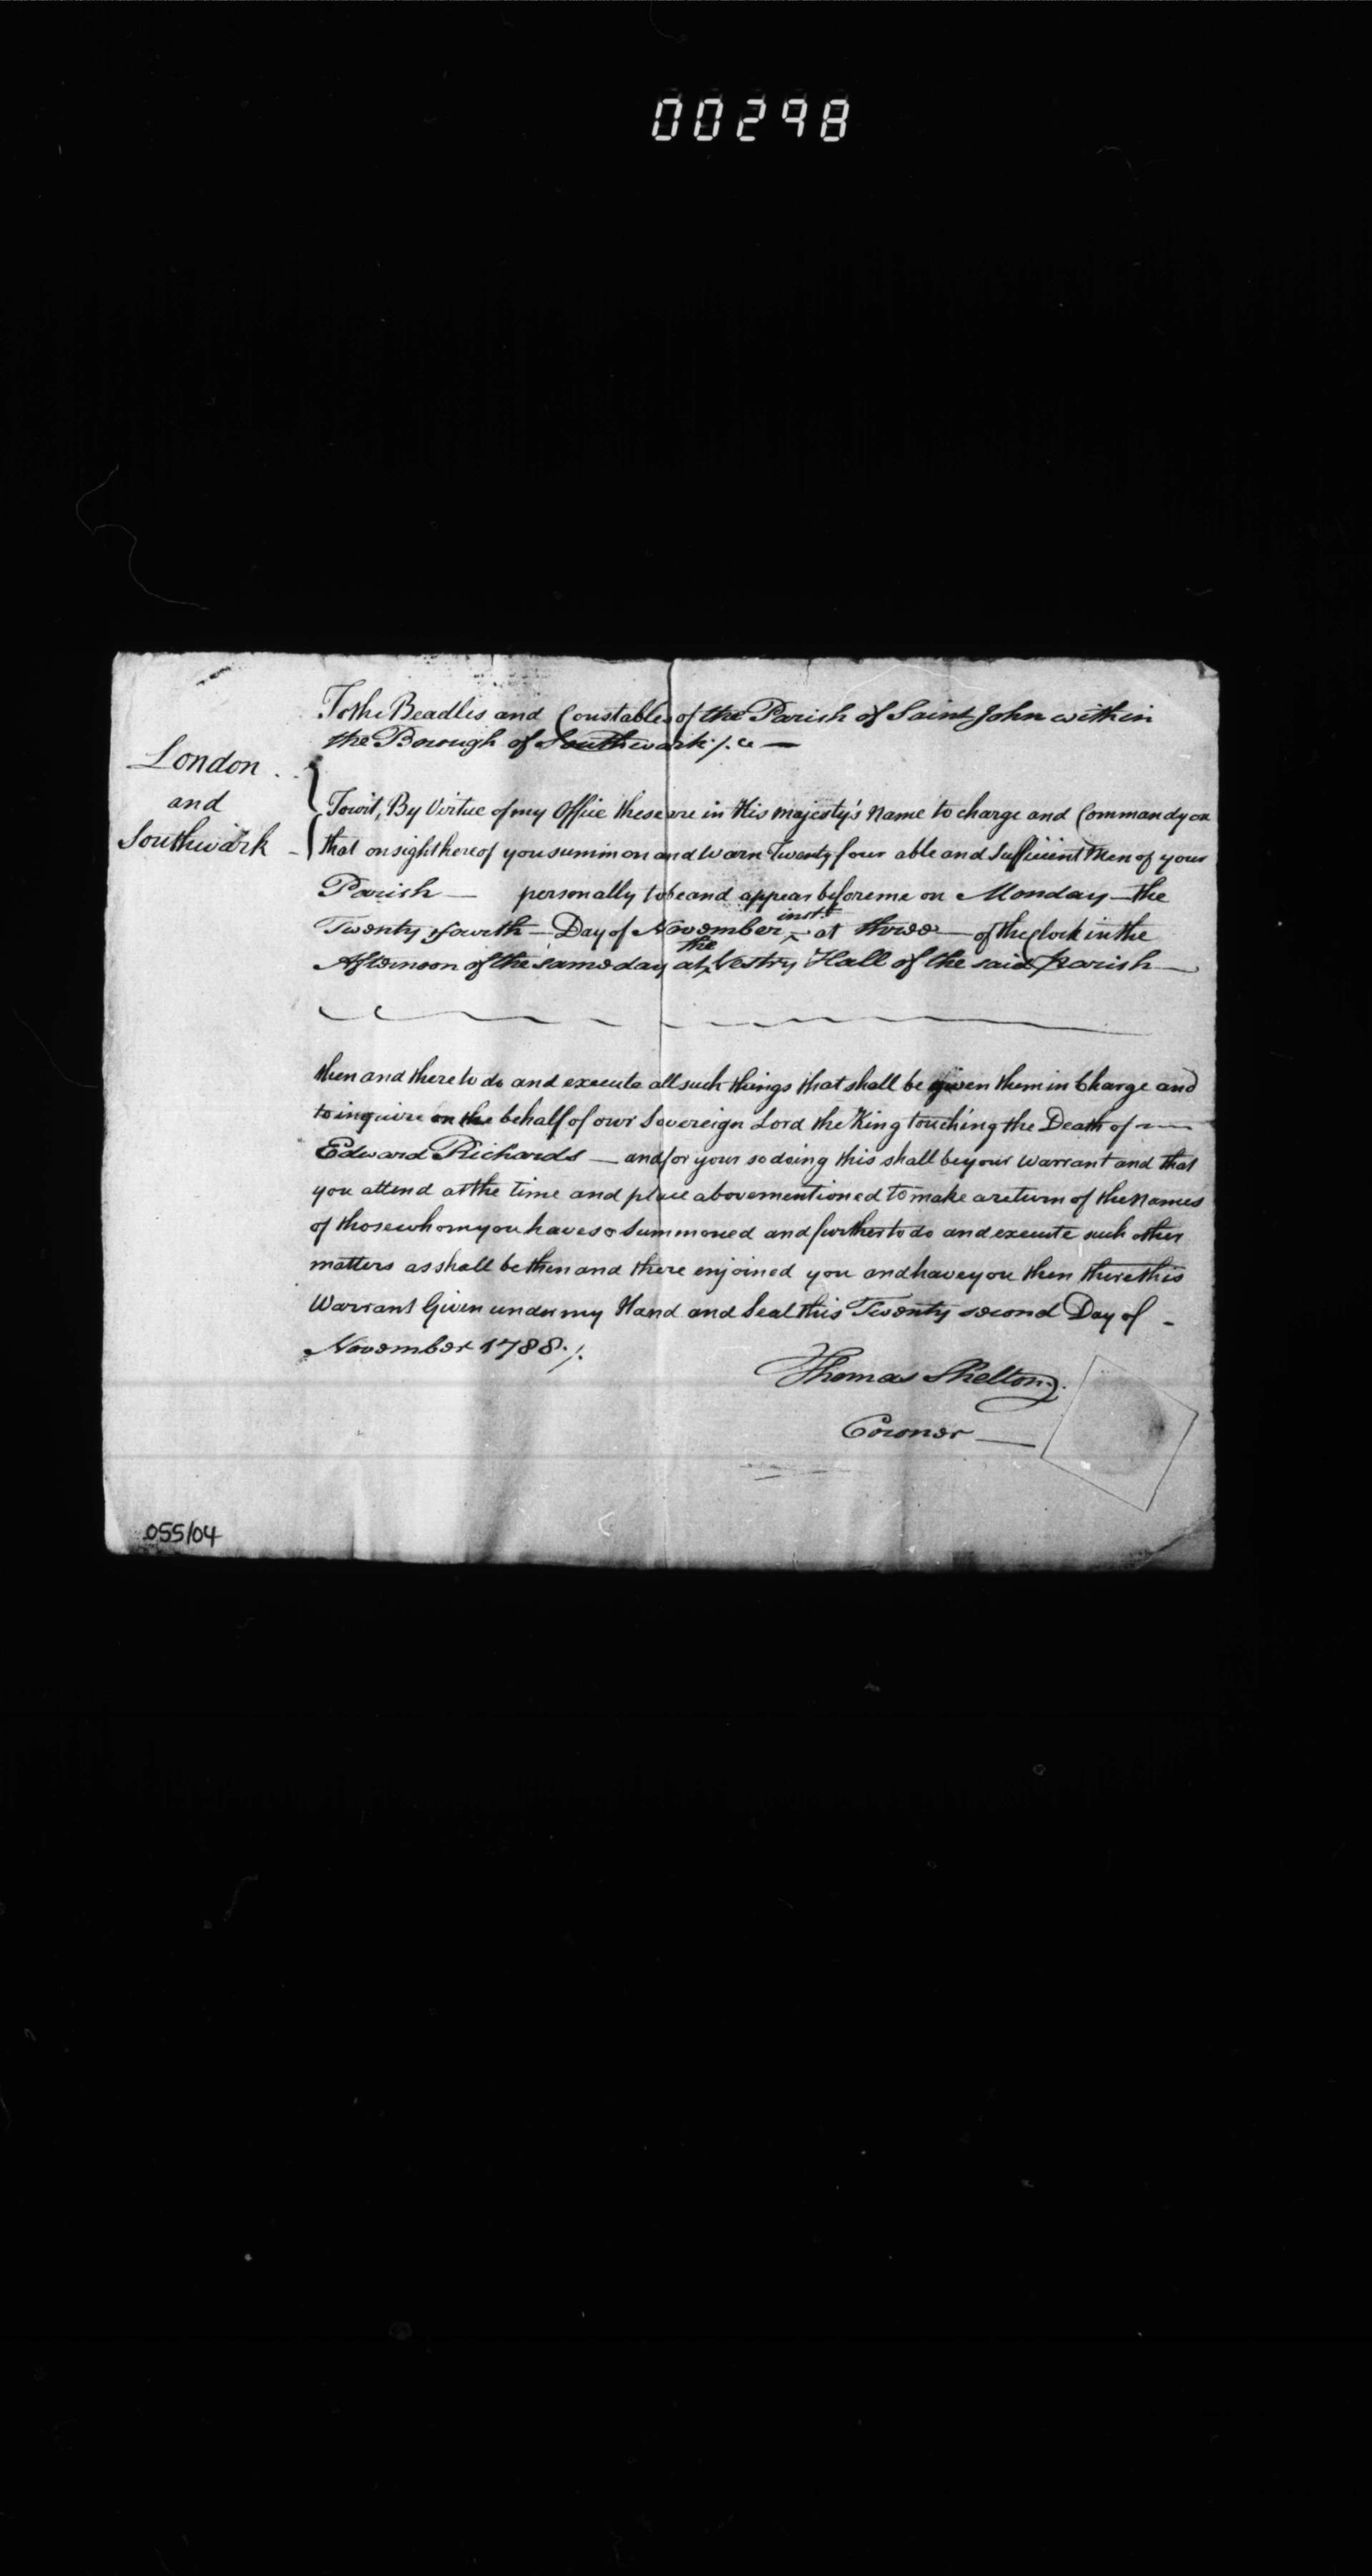 00298
To the Beadles and Constables of the Parish of Saint John within
the Borough of Southwark /. a —
London
and
Southwark
Towit, By Virtue of my Office these are in His Majesty's Name to charge and Command you
that on sight hereof you summon and warn Twenty four able and Sufficient Men of your
Parish — personally to be and appear before me on Monday — the
Twenty fourth — Day of November inst at three — of the Clock in the
Afternoon of the same day at the Vestry Hall of the said parish —
then and there to do and execute all such things that shall be given them in Charge and
to inquire on the behalf of our Sovereign Lord the King touching the Death of —
Edward Richards — and for your so doing this shall be your Warrant and that
you attend at the time and place abovementioned to make a return of the Names
of those whom you have so Summoned and further to do and execute such other
matters as shall be then and there enjoined you and have you then there this
Warrant Given under my Hand and Seal this Twenty second Day of -
November 1788 /.
Thomas Shelton
Coroner —
055/04